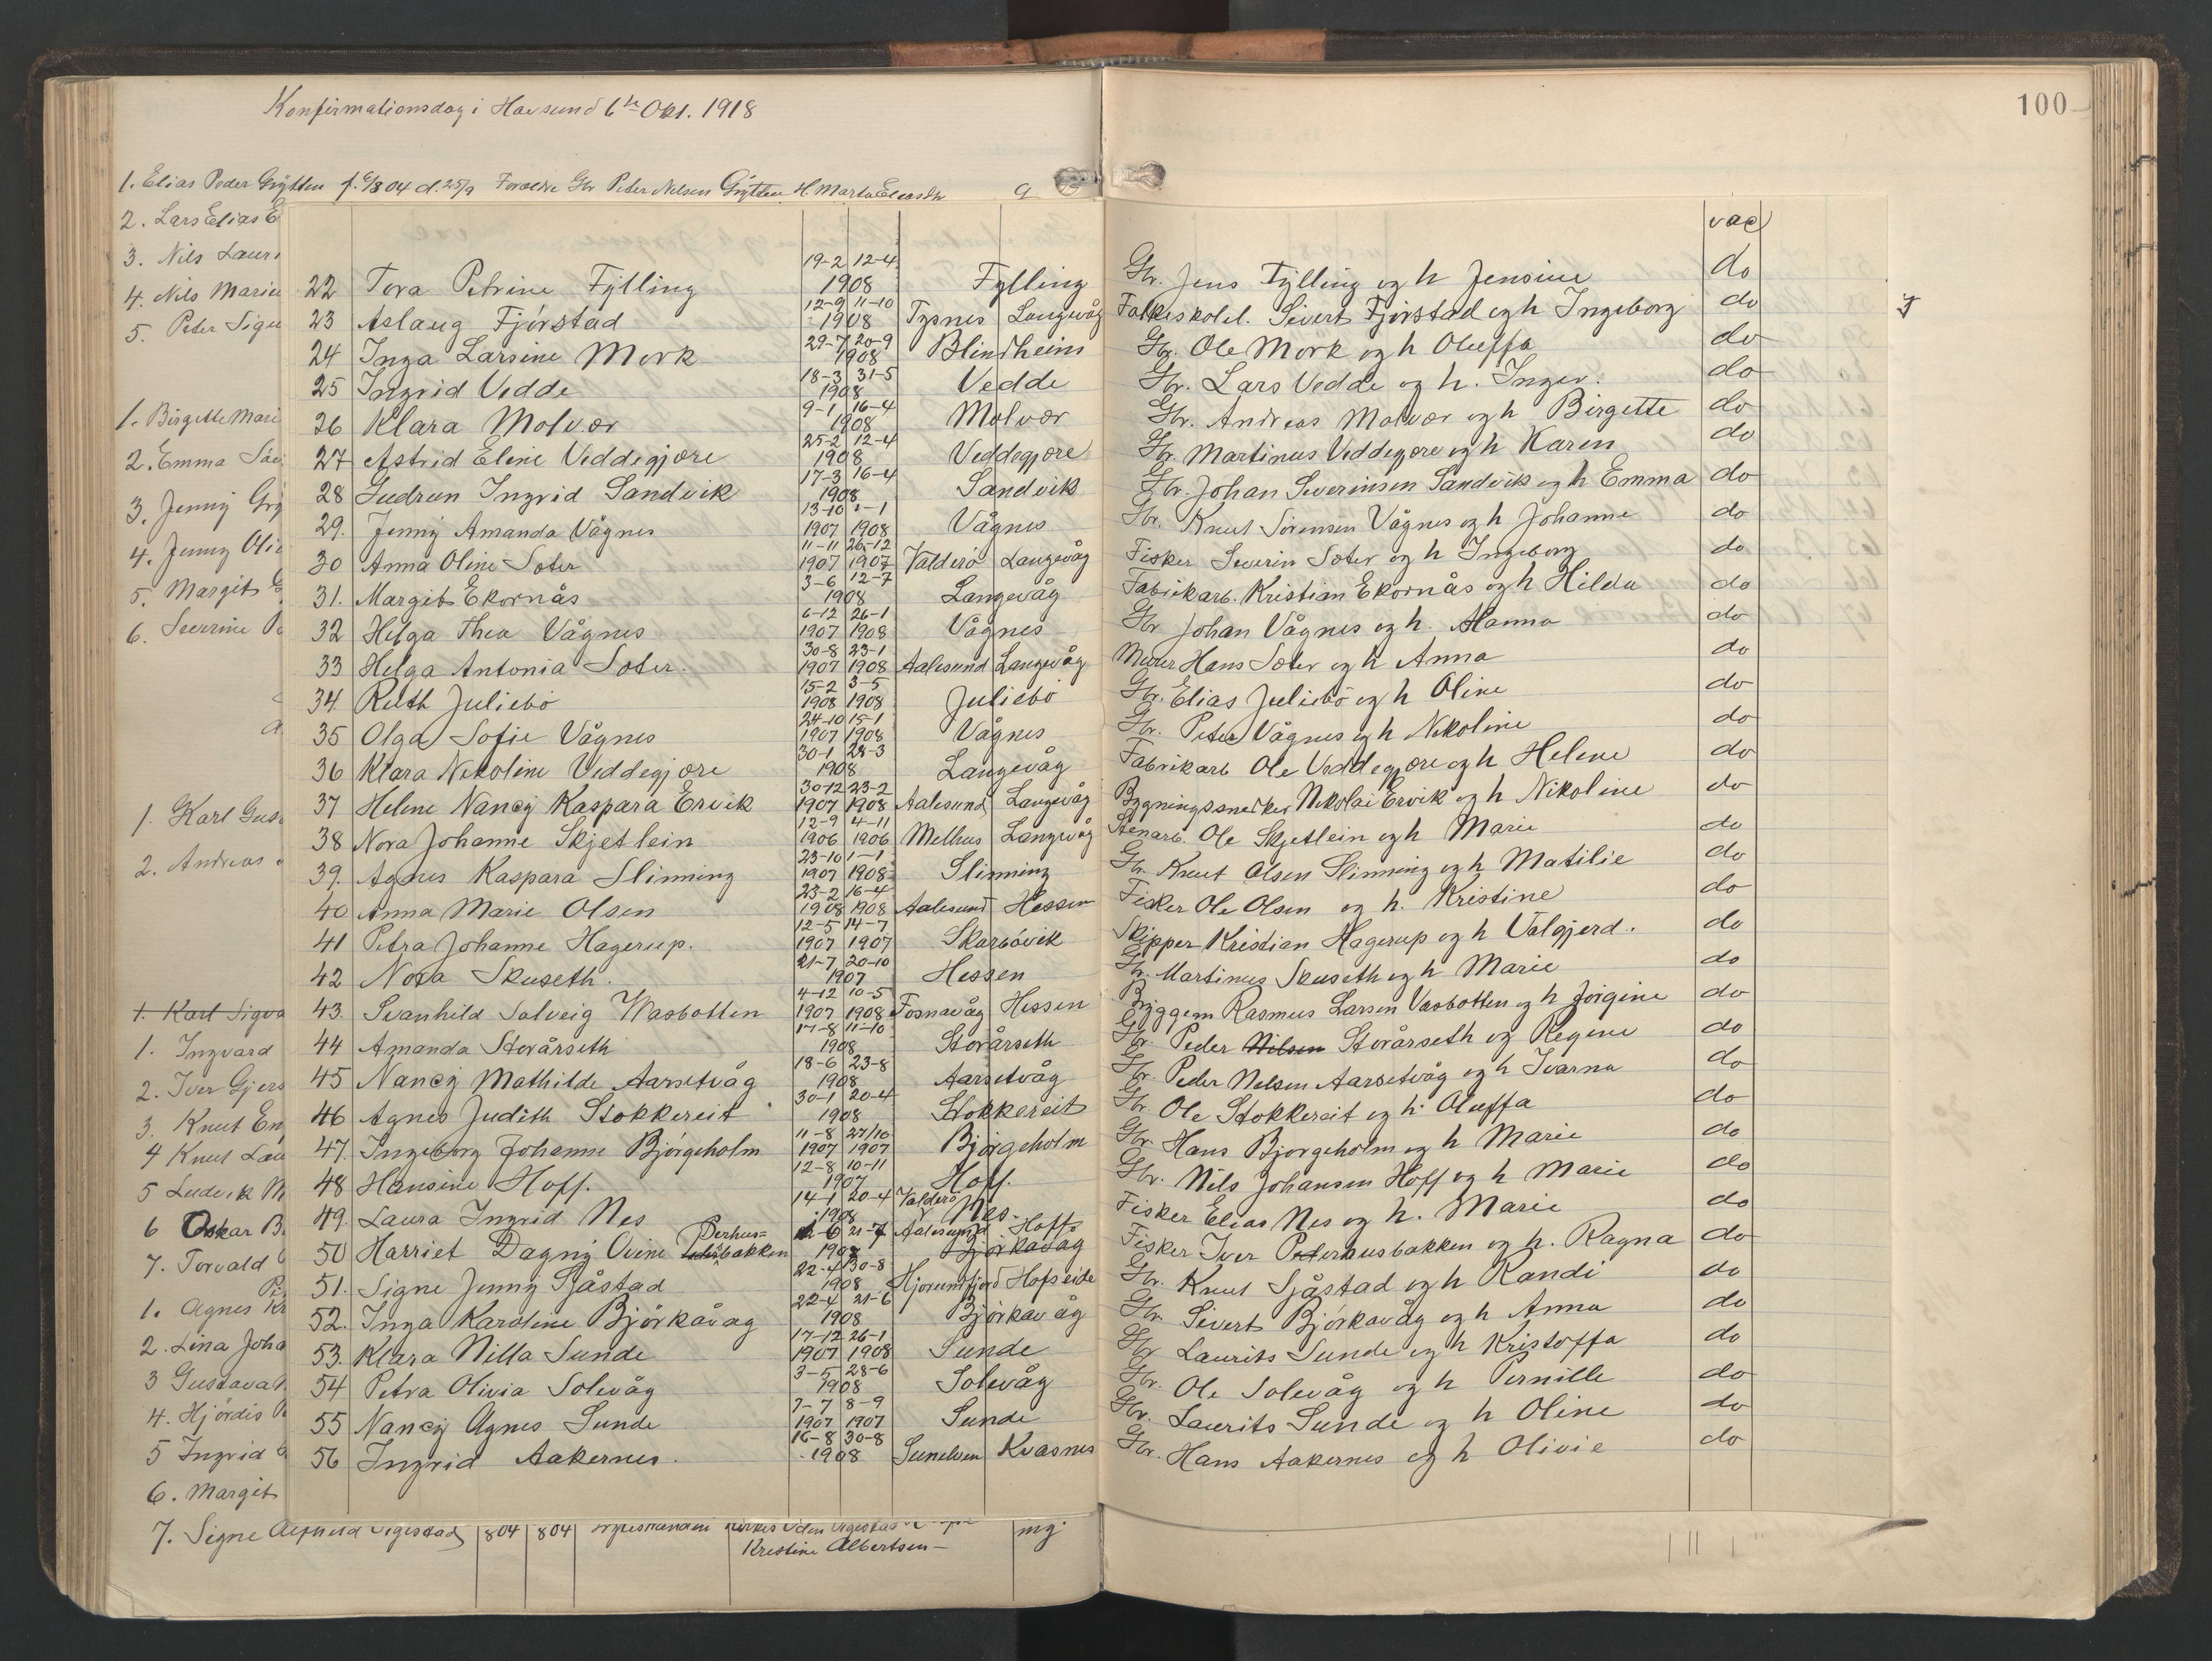 Konfirmationsdag i Havsund 6te Okt. 1918
100
1. Elias Peder Grytten f. 6/8 04 d. 25/9 Forældre Gbr Peter Nelsen Grytten H. Marta Eliasdtr g
2. Lars Elias E
3. Nils Lauri
4. Nils Marius
5. Peter Sigu
1. Birgitte Mari
2. Emma Sæv
3. Jenny Gry
4. Jenny Oliv
5. Margit E
6. Severine Pe
1. Karl Gust
2. Andreas
1. Karl Sigva
1. Ingvard
2. Iver Gjers
3. Knut En
4 Knut Lau
5 Ludvik M
6 Oskar B
7. Torvald
1. Agnes Kr
2. Lina Joha
3 Gustava
4. Hjördis P
5 Ingrid
6. Margit
7. Signe 804 804 Kristine Albertsen mg.
vac
22 Tora Petrine Fylling 19-2 12-4 1908 Fylling Gbr. Jens Fylling og h Jensine do
23 Aslaug Fjörstad 12-9 11-10 1908 Tysnes Langevåg Folkeskolel. Sivert Fjörstad og h Ingeborg do
24 Inga Larsine Mork 29-7 20-9 1908 Blindheim Gbr. Ole Mork og h Oluffa do
25 Ingrid Vedde 18-3 31-5 1908 Vedde Gbr. Lars Vedde og h. Inger. do
26 Klara Molvær 9-1 16-4 1908 Molvær Gbr. Andreas Molvær og h Birgitte do
27 Astrid Eline Veddegjære 25-2 12-4 1908 Veddegjære Gbr. Martinus Veddegjære og h Karen do
28 Gudrun Ingrid Sandvik 17-3 16-4 1908 Sandvik Gbr. Johan Severinsen Sandvik og h Emma do
29. Jenny Amanda Vågnes 13-10 1-1 1907 1908 Vågnes Gbr. Knut Sørensen Vågnes og h Johanne do
30 Anna Oline Sæter 11-11 26-12 1907 1907 Valderö Langevåg Fisker Severin Sæter og h Ingeborg do
31. Margit Ekornås 3-6 12-7 1908 Langevåg Fabrikarb. Kristian Ekornås og h Hilda do
32 Helga Thea Vågnes 6-12 26-1 1907 1908 Vågnes Gbr Johan Vågnes og h. Hanna do
33 Helga Antonia Sæter. 30-8 23-1 1907 1908 Aalesund Langevåg Murer Hans Sæter og h Anna do
34. Ruth Juliebö 15-2 3-5 1908 1908 Juliebö Gbr. Elias Juliebö og h Oline do
35 Olga Sofie Vågnes 24-10 15-1 1907 1908 Vågnes Gbr. Peter Vågnes og h Nikoline do
36 Klara Nikoline Veddegjære 30-1 28-3 1908 Langevåg Fabrikarb Ole Veddegjære og h Helene do
37 Helene Nancy Kaspara Ervik 30-12 23-2 1907 1908 Aalesund Langevåg Bygningssnedker Nikolai Ervik og h Nikoline do
38 Nora Johanne Skjetlein 12-9 4-11 1906 1906 Melhus Langevåg Stenarb. Ole Skjetlein og h Marie do
39. Agnes Kaspara Slinning 23-10 1-1 1907 1908 Slinning Gbr. Knut Olsen Slinning og h Matilie do
40 Anna Marie Olsen 23-2 16-4 1908 1908 Aalesund Hessen Fisker Ole Olsen og h. Kristine do
41 Petra Johanne Hagerup. 12-5 14-7 1907 1907 Skarbövik Skipper Kristian Hagerup og h Valgjerd. do
42 Nora Skuseth. 21-7 20-10 1907 Hessen Gbr. Martinus Skuseth og h Marie do
43. Svanhild Solveig Wasbotten 4-12 10-5 1907 1908 Fosnavåg Hessen Byggem Rasmus Larsen Vasbotten og h Jörgine do
44 Amanda Storårseth 17-8 11-10 1908 Storårseth Gbr. Peder Nilsen Storårseth og Regine do
45 Nancy Mathilde Aarsetvåg 18-6 23-8 1908 Aarsetvåg Gbr. Peder Nelsen Aarsetvåg og h Ivarna do
46 Agnes Judith Stokkereit 30-1 20-4 1908 Stokkereit Gbr. Ole Stokkereit og h. Oluffa do
47. Ingeborg Johanne Bjørgeholm 11-8 27/10 1907 1907 Bjørgeholm Gbr Hans Bjørgeholm og h Marie do
48 Hansine Hoff. 12-8 10-11 1907 Hoff. Gbr. Nils Johansen Hoff og h Marie do
49. Laura Ingrid Nes 14-1 20-4 1908 Valderö Nes. Fisker Elias Nes og h. Marie do
50 Harriet Dagny Ovine Perhusbakken 12-6 21-7 1908 Aalesund Hoff Bjørkavåg Fisker Iver Peterhusbakken og h. Ragna do
51. Signe Jenny Sjåstad 22-4 30-8 1908 Hjørundfjord Hofseide Gbr. Knut Sjåstad og h Randi do
52. Inga Karoline Björkavåg 22-4 21-6 1908 Bjørkavåg Gbr Sivert Bjørkavåg og h Anna do
53. Klara Nilla Sunde 17-12 26-1 1907 1908 Sunde Gbr Laurits Sunde og h Kristoffa do
54 Petra Olivia Solevåg 3-5 28-6 1908 Solevåg Gbr. Ole Solevåg og h Pernille do
55 Nancy Agnes Sunde 7-7 8-9 1907 1907 Sunde Gbr. Laurits Sunde og h Oline do
56 Ingrid Aakernes. 16-8 30-8 1908 Sunelven Kvasnes Gbr. Hans Aakernes og h Olivie do